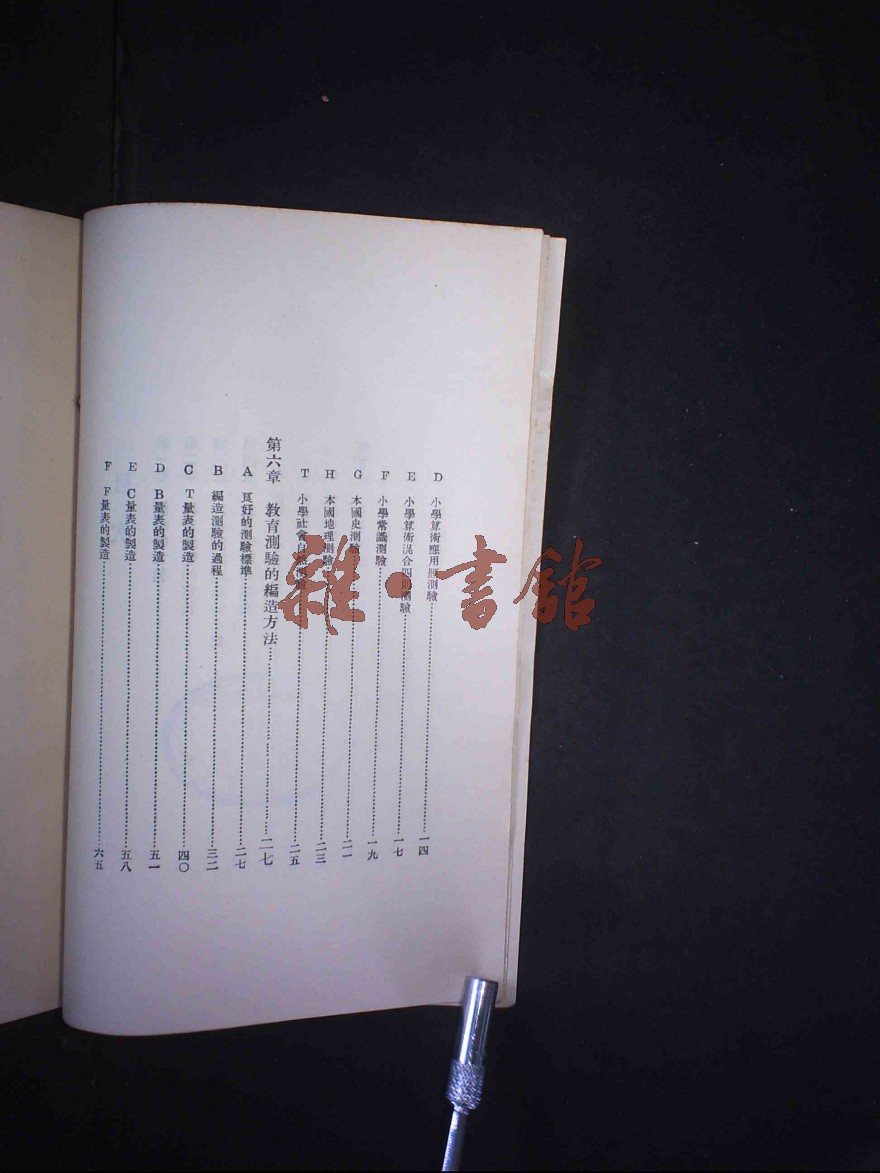 D 小學算術應用題測驗……一四
E 小學算術混合四則測驗……一七
F 小學常識測驗……一九
G 本國史測驗……二一
H 本國地理測驗……二三
T 小學社會自然測驗……二五
第六章 教育測驗的編造方法……二七
A 良好的測驗標準……二七
B 編造測驗的過程……三二
C T量表的製造……四〇
D B量表的製造……五一
E C量表的製造……五八
F F量表的製造……六五
雜·書館